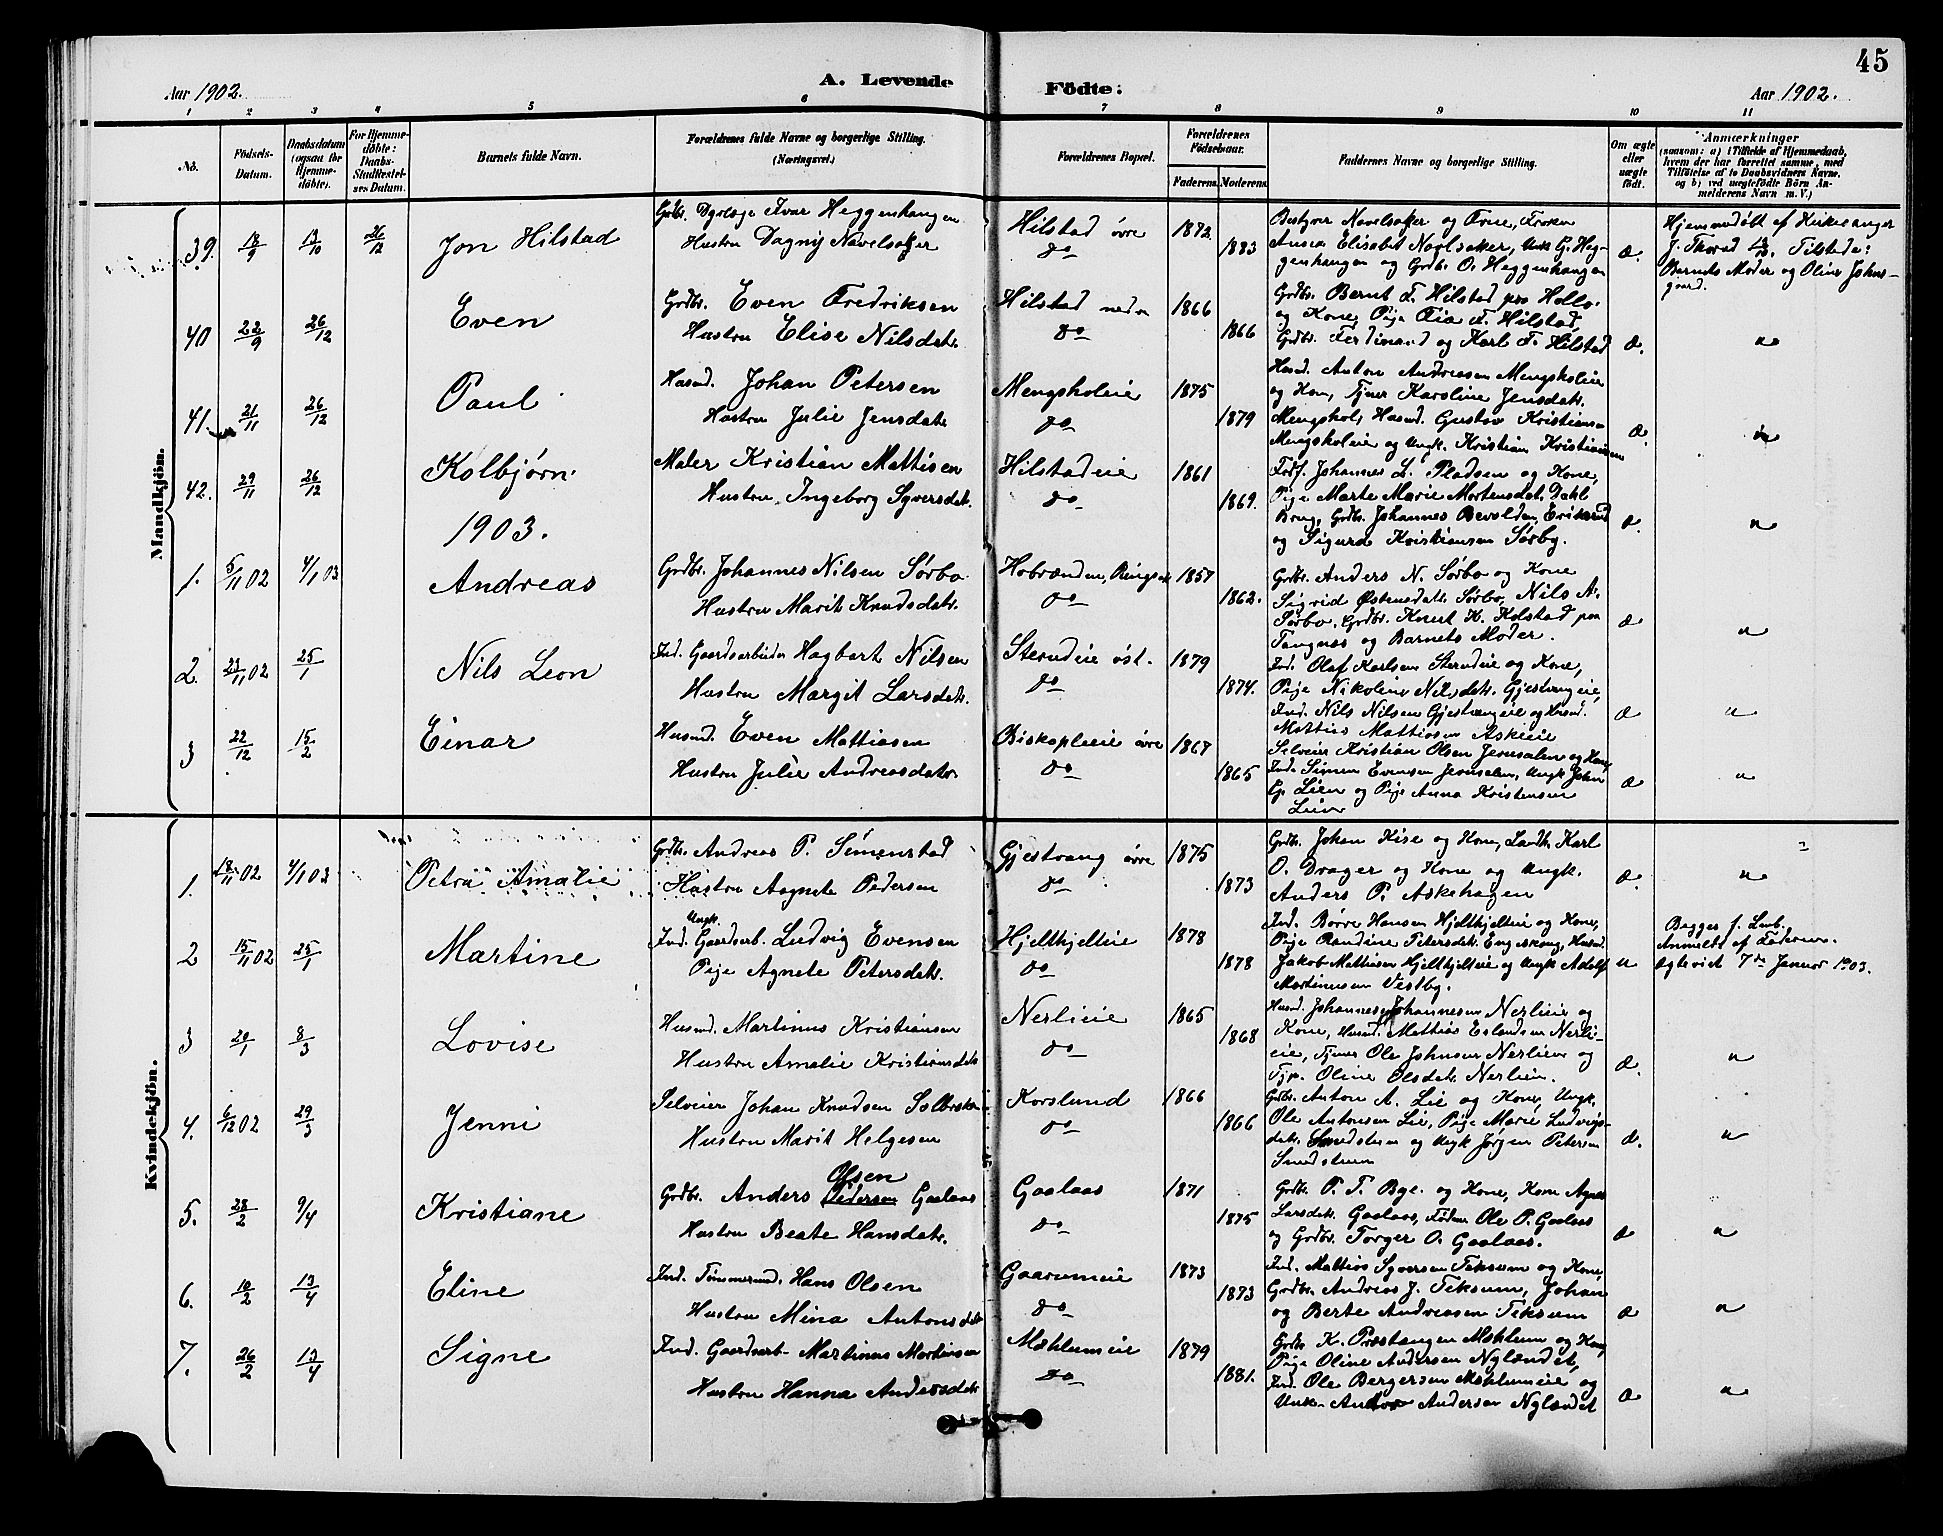 45
Aar 1902.
A. Levende
Födte:
Aar 1902.
1 2 3 4 5 6 7 8 9 10 11
No.
Födsels-
Datum.
Daabsdatum
(ogsaa for
Hjemme-
døbte).
For Hjemme-
døbte:
Daabs-
Stadfæstel-
ses Datum.
Barnets fulde Navn.
Forældrenes fulde Navne og borgerlige Stilling.
(Næringsvei.)
Forældrenes Bopæl.
Forældrenes
Fødselsaar.
Faderens. Moderens.
Faddernes Navne og borgerlige Stilling.
Om ægte
eller
uægte
født.
Anmærkninger
(saasom: a) i Tilfælde af Hjemmedaab,
hvem der har forrettet samme, med
Tilføielse af to Daabsvidners Navne,
og b) ved uægtefødte Børn An-
melderens Navn m. V.)
Mandkjön.
39. 18/9 13/10 26/12 Jon Hilstad
Ivar Heggenhangen
Hustru Dagny Navelsaker
Hilstad øvre 1872.
do 1883
Bestyrer Navelsaker og Frue, Frøken
Anna Elisabet Navlsaker, Unk. G. Heg-
genhangen og Grdbr. O. Heggenhangen
æ.
Hjemmedøbt af Kirkesanger
Tilstede:
Barnets Moder og Oline Johns-
gaard.
40 22/9 26/12 Even
Grdbr. Even Fredriksen
Hustru Elise Nilsdatr.
Hilstad nedre 1866
do 1866
Grdbr. Bernt F. Hilstad
og Kone, Pige F. Hilstad,
Grdbr. Ferdinand og Karl F. Hilstad
æ. "
41. 21/11 26/12 Paul
Husmd. Johan Petersen
Hustru Julie Jensdatr.
Mengsholeie 1875
do 1879
Husmd. Anton Andreasen Mengsholeie
og Kone, Tjener Karoline Jensdatr.
Mengshol, Husmd. Gustav Kristiansen
Mengsholeie og Ungk. Kristian Kristiansen
æ. "
42. 29/11 26/12 Kolbjørn.
Maler Kristian Mattisen
Hustru Ingeborg Syversdatr.
Hilstadeie 1861
do 1869.
Johannes L. Pladsen og Kone,
Pige Marte Marie Mortensdatr. Dahl
Brug, Grdbr. Johannes Erikrud
og Sigurd Kristiansen Sørby.
æ "
1903.
1. 5/11 02 4/1 03 Andreas
Grdbr. Johannes Nilsen Sørbo
Hustru Marit Knudsdatr.
1857
do 1862.
Grdbr. Anders N. Sørbo og Kone
Sigrid Østensdatr. Sørbo, Nils A.
Sørbo, Grdbr. Knut K. Kolstad paa
Tangnes og Barnets Moder.
æ "
2. 23/11 02 25/1 Nils Leon
Ind. Gaardsarbeider Hagbart Nilsen
Hustru Margit Larsdatr.
Sterudeie øst. 1879
do 1874.
Ind. Olaf Karlsen Sterudeie og Kone,
Pige Nikoline Nilsdatr. Gjestvangeie,
Ind. Nils Nilsen Gjestvangeie og Husmd.
Mattias Mattiasen Askeeie
æ "
3 22/12 15/2 Einar
Husmd. Even Mattiasen
Hustru Julie Andreasdatr.
Biskoplieie øvre 1867
do 1865
Selveier Kristian Olsen Jerusalem og Kone,
Ind. Simen Evensen Jerusalem, Ungk. John
G. Lien og Pige Anna Kristensen
Lien
æ "
Kvindekjön.
1. 18/11 02 4/1 03 Petra Amalie
Grdbr. Andreas P. Simenstad
Hustru Agnete Pedersen
Gjestvang øvre 1875
do 1873
Grdbr. Johan Kise og Kone, Landh. Karl
O. Drager og Kone og Ungk.
Anders P. Askehagen
æ. "
2 15/11 02 25/1 Martine
Ungk.
Ind. Gaardsarb. Ludvig Evensen
Pige Agnete Petersdatr.
Hjelthjelteie 1878
do 1878
Ind. Børre Hansen Hjelthjelteie og Kone,
Pige Randine Petersdatr. Husmd.
Jakob Mattiasen Hjelthjelteie og Ungk Adolf
Martinusen Vestby.
u
Begges f. Leub.
Anmeldt af Faderen.
Ægteviet 7de Januar 1903.
3 20/1 8/3 Lovise
Husmd. Martinus Kristiansen
Hustru Amalie Kristiansdatr
Nerlieie 1865
do 1868
Husmd. Johannes Johannesen Nerlieie og
Kone, Husmd. Mathias Nerli-
eie, Tjener Ole Johnsen Nerlien og
Tjp. Oline Olsdatr. Nerlien.
æ. "
4. 6/12 02 29/3 Jenni
Selveier Johan Knudsen
Hustru Marit Helgesen
Korslund 1866
do 1866
Grdbr. Anton A. Lie og Kone, Ungk.
Ole Antonsen Lie, Pige Marie Ludvigs-
datr. Smedstuen og Ungk Jørgen Petersen
Smedstuen
æ. "
5. 28/2 9/4 Kristiane
Olsen
Grdbr. Anders Pedersen Gaalaas
Hustru Beate Hansdatr.
Gaalaas 1871
do 1875
Grdbr. P. T. Bye. og Kone, Kone Agnes
Larsdatr. Gaalaas, Ole P. Gaalaas
og Grdbr. Torger O. Gaalaas.
æ "
6. 10/2 13/4 Eline
Ind. Tømmermd. Hans Olsen
Hustru Mina Antonsdatr
Gaarumeie 1873
do 1873
Ind. Mattias Syversen Teksum og Kone,
Grdbr. Andreas J. Teksum, Johan
og Berte Andreasen Teksum
æ "
7. 26/2 13/4 Signe
Ind. Gaardsarb. Martinus Martinsen
Hustru Hanna Andersdatr
Mæhlumeie 1879
do 1881.
Grdbr K. Præstangen Mæhlum og Kone,
Pige Oline Andersen Nylændet,
Ind. Ole Bergersen Mæhlumeie og
Unk. Andersen Nylændet
æ "